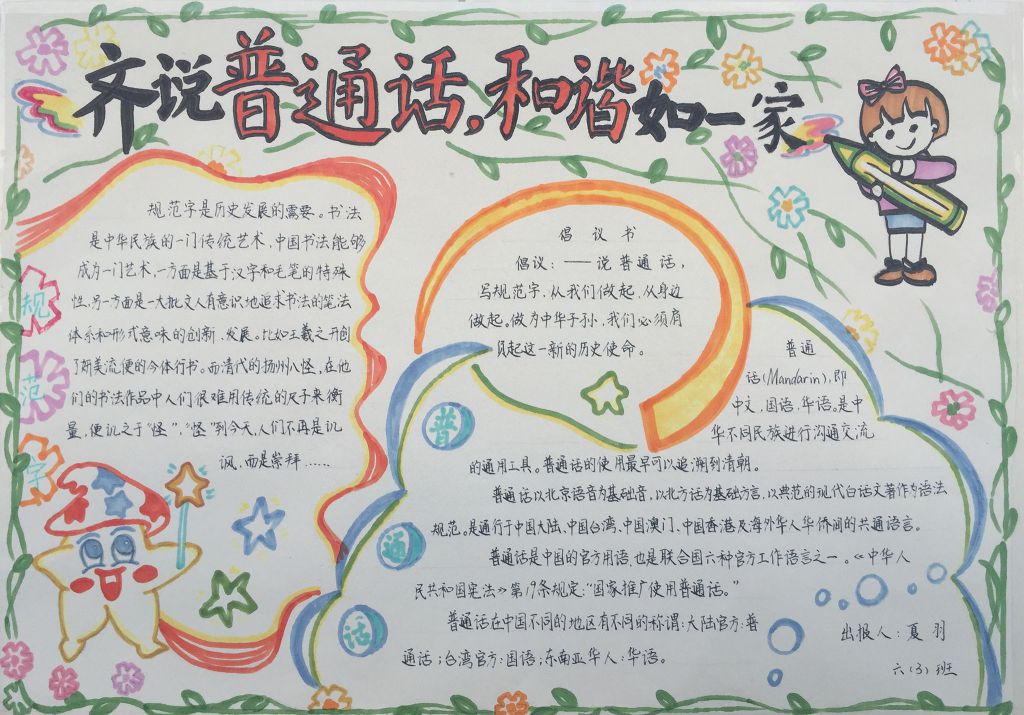 齐说普通话,和谐如一家
规范字是历史发展的需要。书法
是中华民族的一门传统艺术,中国书法能够
成为一门艺术,一方面是基于汉字和毛笔的特殊
性,另一方面是一大批文人有意识地追求书法的笔法
体系和形式意味的创新、发展。比如王羲之开创
了妍美流便的今体行书。而清代的扬州八怪,在他
们的书法作品中人们很难用传统的尺子来衡
量,便讥之于“怪”,“怪”到今天,人们不再是讥
讽,而是崇拜……
规
范
字
倡议书
倡议:——说普通话,
写规范字,从我们做起,从身边
做起。做为中华子孙,我们必须肩
负起这一新的历史使命。
普
通
话
普通
话(Mandarin),即
中文,国语,华语。是中
华不同民族进行沟通交流
的通用工具。普通话的使用最早可以追溯到清朝。
普通话以北京语音为基础音,以北方话为基础方言,以典范的现代白话文著作为语法
规范。是通行于中国大陆、中国台湾、中国澳门、中国香港及海外华人华侨间的共通语言。
普通话是中国的官方用语,也是联合国六种官方工作语言之一。《中华人
民共和国宪法》第19条规定:“国家推广使用普通话。”
普通话在中国不同的地区有不同的称谓:大陆官方:普
通话;台湾官方:国语;东南亚华人:华语。
出报人:夏羽
六(3)班